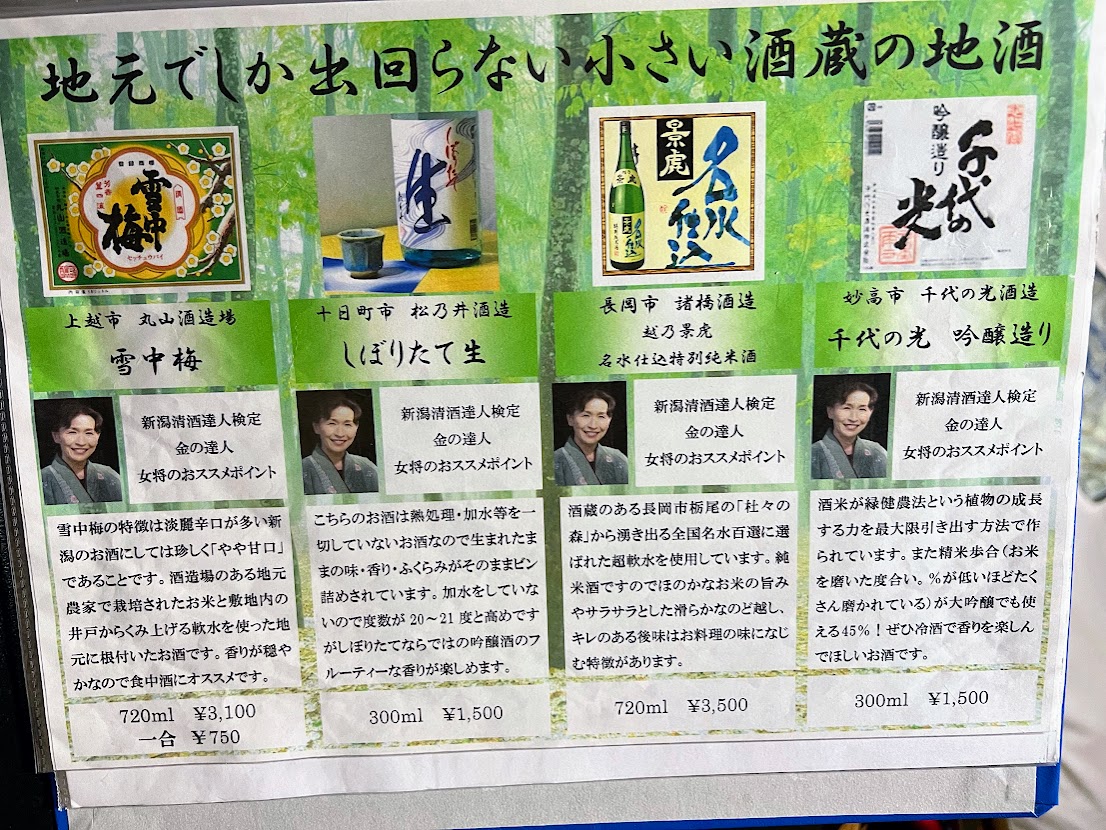 地元でしか出回らない小さい酒蔵の地酒
雪中梅
セッチュウバイ
しぼりたて
生
景虎
名水仕込
吟醸造り
千代の光
上越市 丸山酒造場
雪中梅
新潟清酒達人検定
金の達人
女将のおススメポイント
雪中梅の特徴は淡麗辛口が多い新
潟のお酒にしては珍しく「やや甘口」
であることです。酒造場のある地元
農家で栽培されたお米と敷地内の
井戸からくみ上げる軟水を使った地
元に根付いたお酒です。香りが穏や
かなので食中酒にオススメです。
720ml ¥3,100
一合 ¥750
十日町市 松乃井酒造
しぼりたて生
新潟清酒達人検定
金の達人
女将のおススメポイント
こちらのお酒は熱処理・加水等を一
切していないお酒なので生まれたま
まの味・香り・ふくらみがそのままビン
詰めされています。加水をしていな
いので度数が 20～21 度と高めです
がしぼりたてならではの吟醸酒のフ
ルーティーな香りが楽しめます。
300ml ¥1,500
長岡市 諸橋酒造
越乃景虎
名水仕込特別純米酒
新潟清酒達人検定
金の達人
女将のおススメポイント
酒蔵のある長岡市栃尾の「杜々の
森」から湧き出る全国名水百選に選
ばれた超軟水を使用しています。純
米酒ですのでほのかなお米の旨み
やサラサラとした滑らかなのど越し、
キレのある後味はお料理の味になじ
む特徴があります。
720ml ¥3,500
妙高市 千代の光酒造
千代の光 吟醸造り
新潟清酒達人検定
金の達人
女将のおススメポイント
酒米が緑健農法という植物の成長
する力を最大限引き出す方法で作
られています。また精米歩合（お米
を磨いた度合い。％が低いほどたく
さん磨かれている）が大吟醸でも使
える45％！ぜひ冷酒で香りを楽しん
でほしいお酒です。
300ml ¥1,500